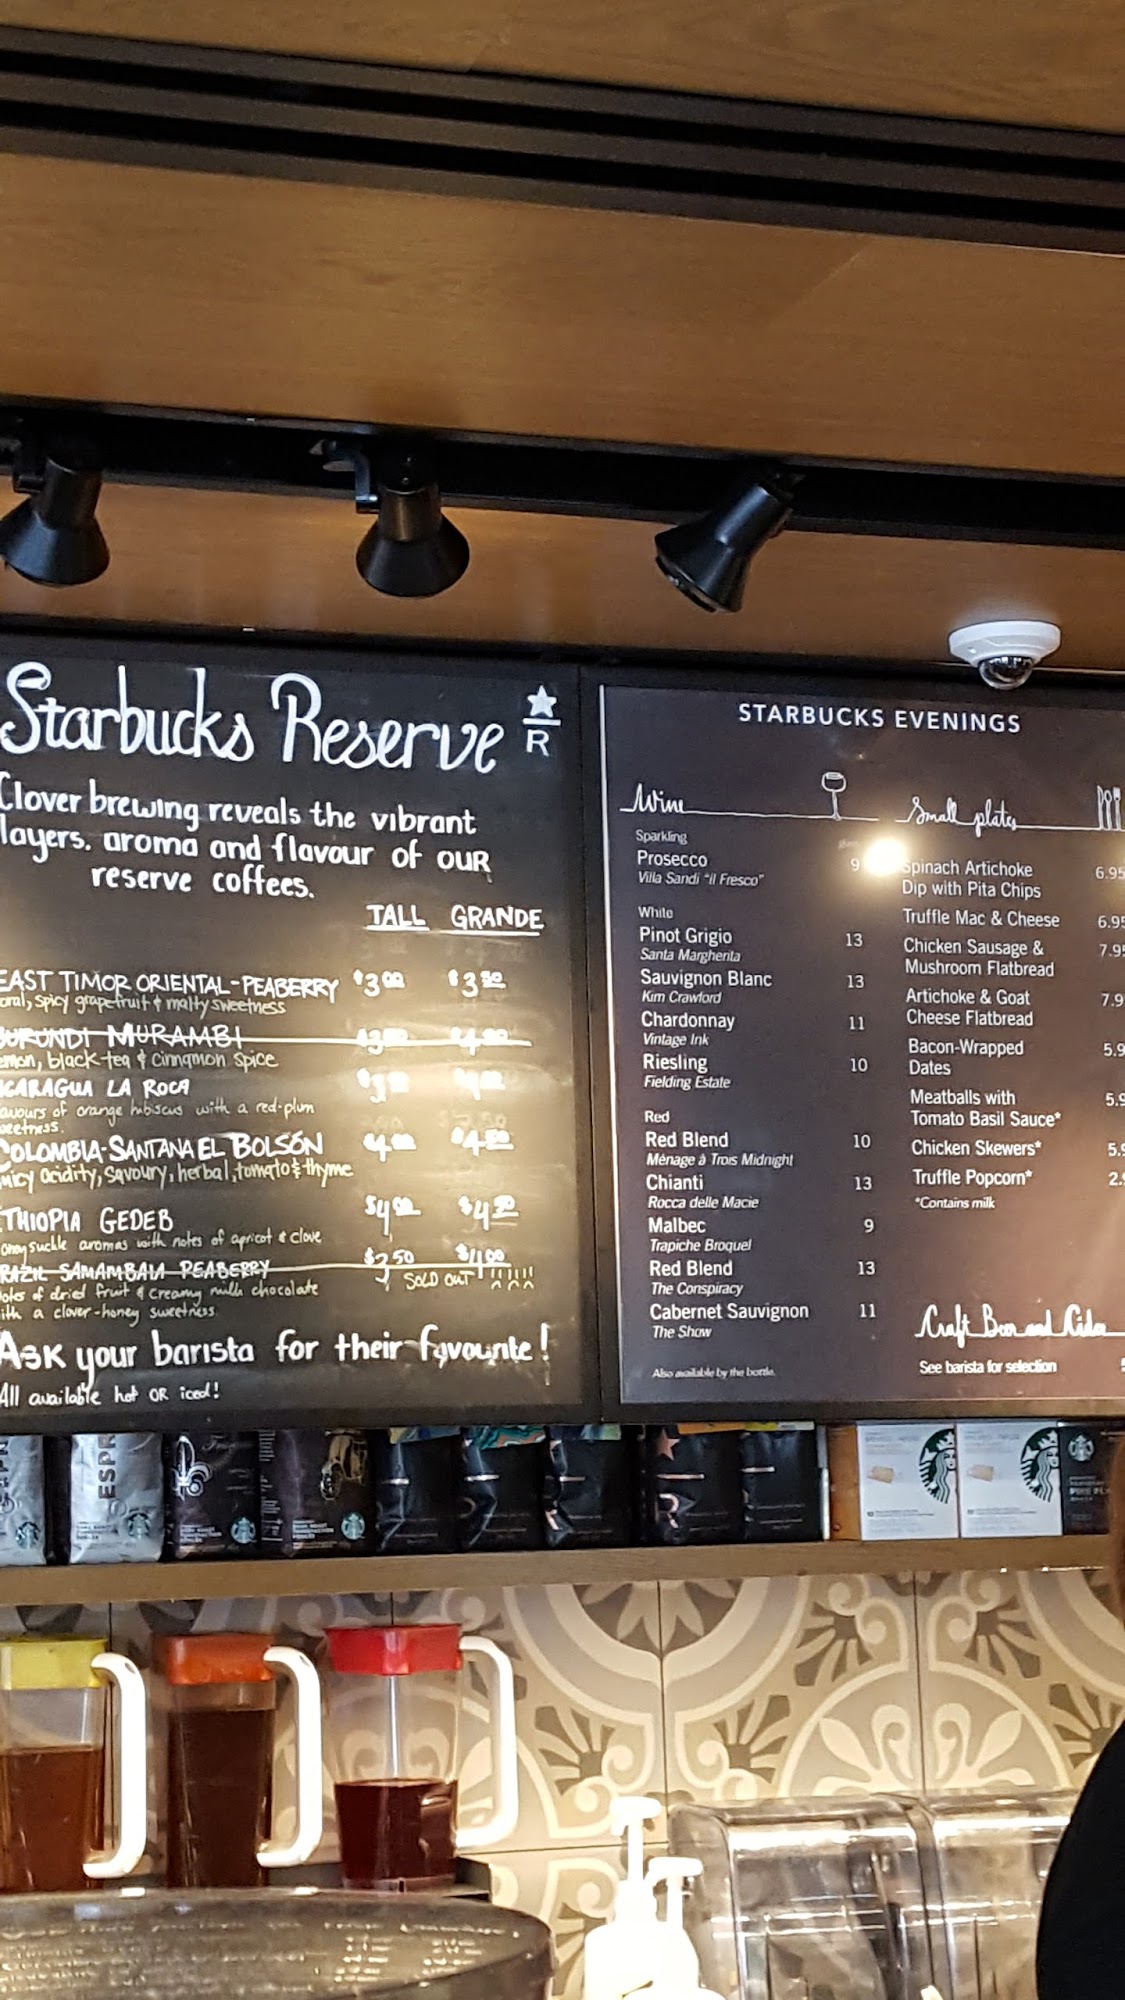 Starbucks Reserve
R
Clover brewing reveals the vibrant
layers. aroma and flavour of our
reserve coffees.
TALL GRANDE
EAST TIMOR ORIENTAL-PEABERRY $3.00 $3.50
oral, spicy grapefruit & malty sweetness
BURUNDI MURAMBI
emon, black tea & cinnamon spice
ICARAGUA LA ROCA
avours of orange hibiscus with a red-plum
weetness.
COLOMBIA-SANTANA EL BOLSÓN 4.00 $4.50
uicy acidity, savoury, herbal, tomato & thyme
ETHIOPIA GEDEB $4.00 $4.50
oney suckle aromas with notes of apricot & clove
RAZIL SAMAMBAIA PEABERRY $3.50 $4.00
SOLD OUT
otes of dried fruit & creamy milk chocolate
ith a clover-honey sweetness
Ask your barista for their favourite!
All available hot OR iced!
STARBUCKS EVENINGS
Wine
Sparkling
Prosecco 9
Villa Sandi "Il Fresco"
White
Pinot Grigio 13
Santa Margherita
Sauvignon Blanc 13
Kim Crawford
Chardonnay 11
Vintage Ink
Riesling 10
Fielding Estate
Red
Red Blend 10
Ménage à Trois Midnight
Chianti 13
Rocca delle Macie
Malbec 9
Trapiche Broquel
Red Blend 13
The Conspiracy
Cabernet Sauvignon 11
The Show
Also available by the bottle.
Small plates
Spinach Artichoke 6.95
Dip with Pita Chips
Truffle Mac & Cheese 6.95
Chicken Sausage & 7.9
Mushroom Flatbread
Artichoke & Goat 7.9
Cheese Flatbread
Bacon-Wrapped 5.9
Dates
Meatballs with 5.9
Tomato Basil Sauce*
Chicken Skewers* 5.9
Truffle Popcorn* 2.
*Contains milk
Craft Beer and Cider
See barista for selection
ESPR
R